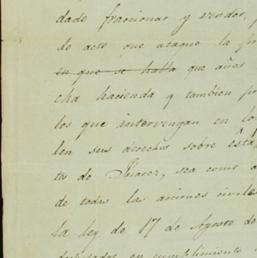 dado fraccionar y vender,
de acto que ataque la
en que se halla que años
cha hacienda y tambien
los que intervengan en lo
len sus derechos sobre ésta
tas de Juarez, sea como
de todas las aciones civile
la ley de 17 de Agosto de
cumplimiento